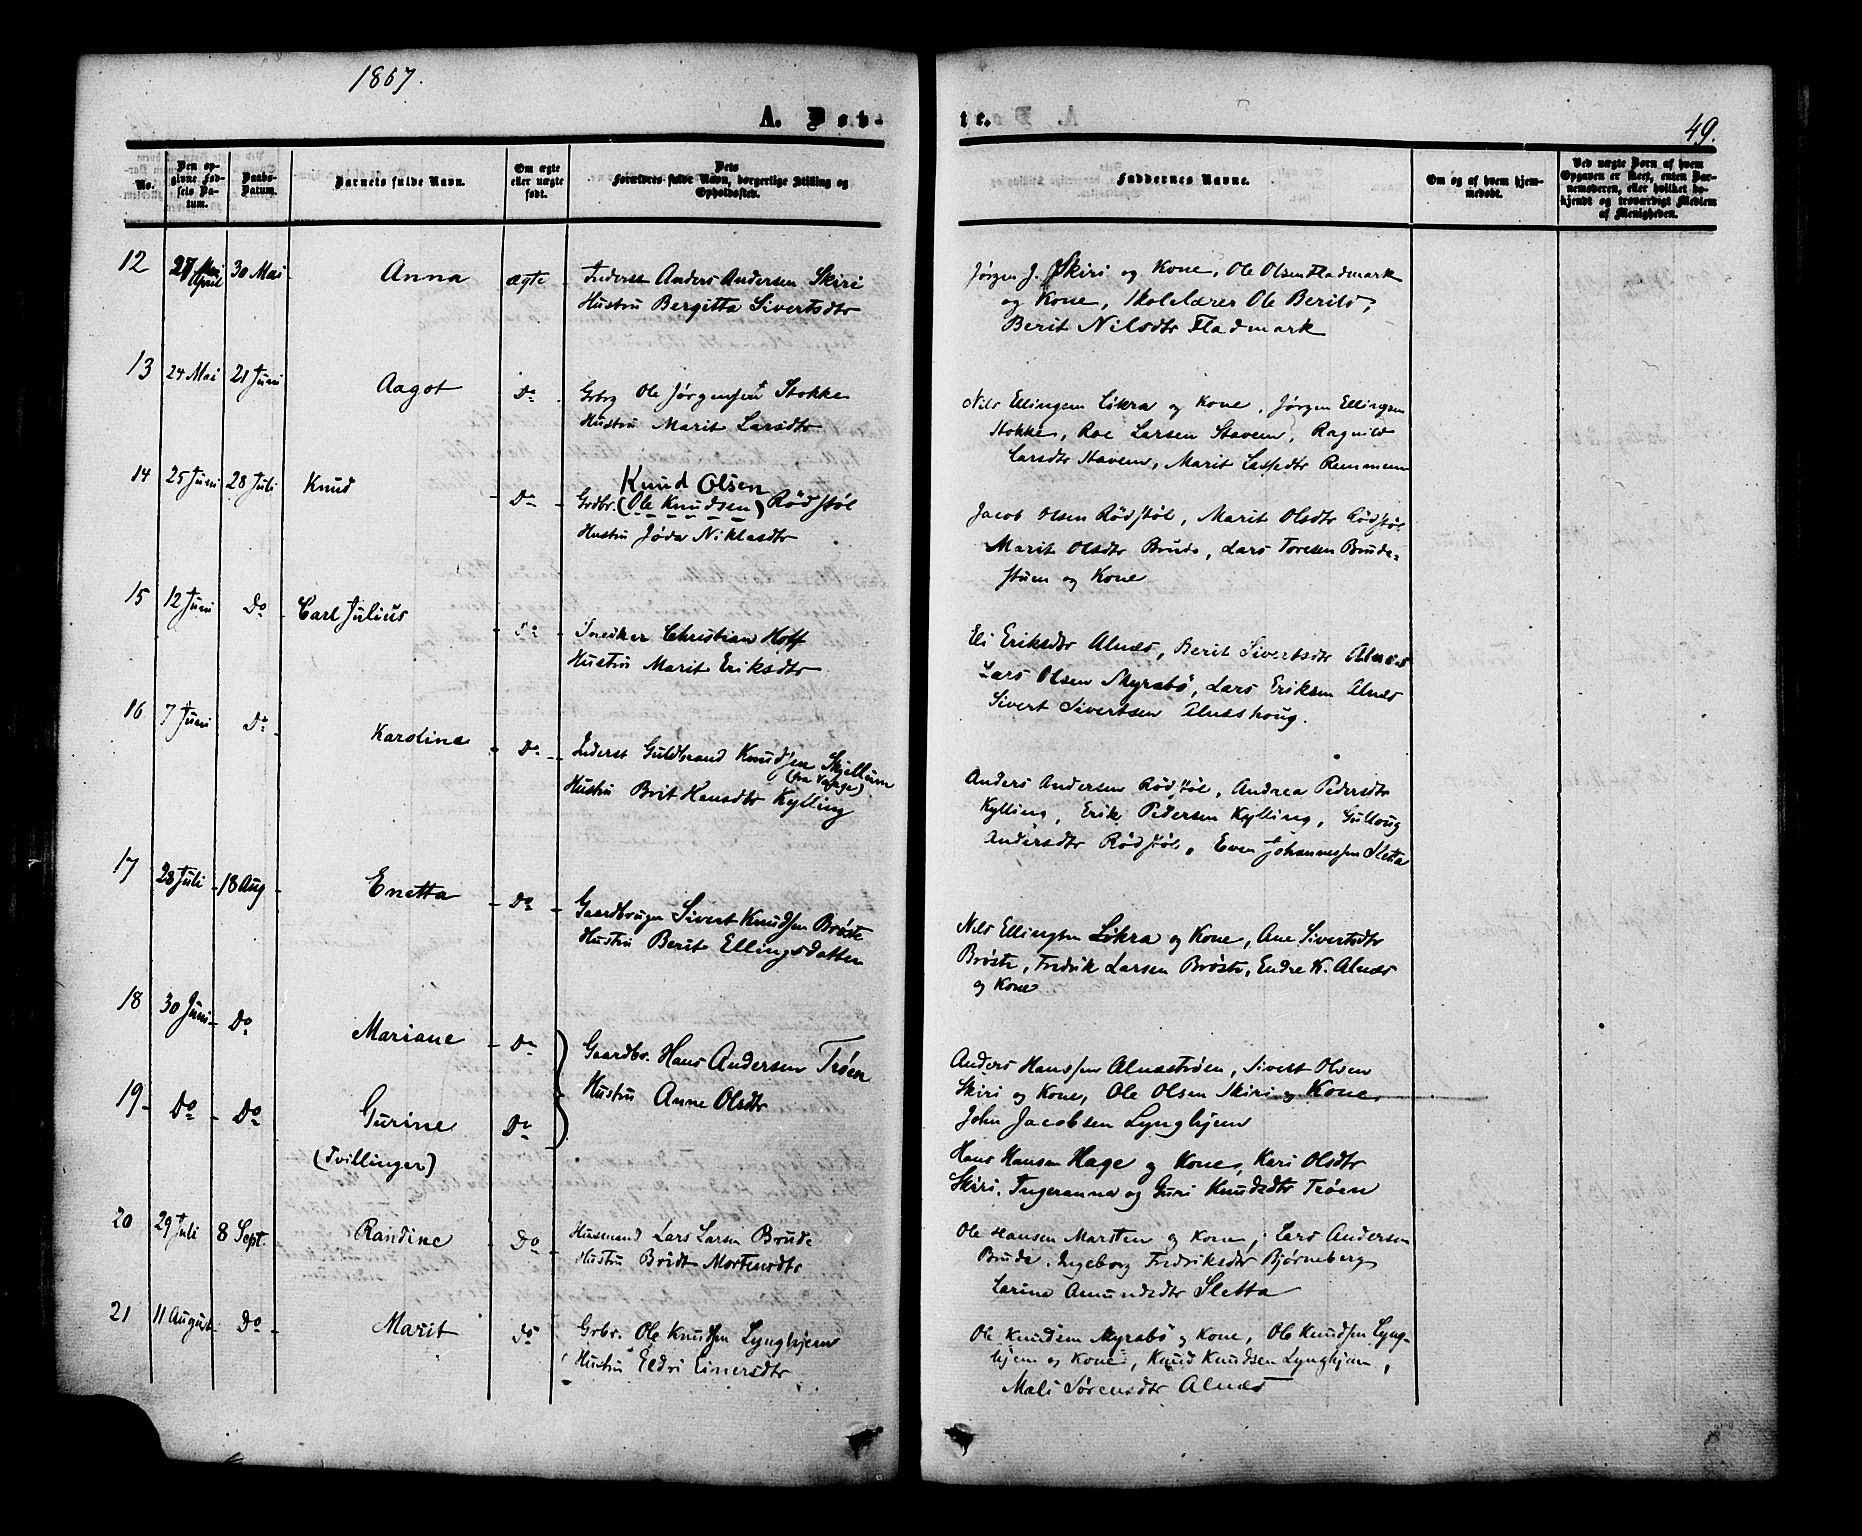 1867.
A. Døb-
te.
49.
No.
Den opgivne Fødsels Datum.
Daabs-Datum.
Barnets fulde Navn.
Om ægte eller uægte født.
Dets Forældres fulde Navn, borgerlige Stilling og Opholdssted.
Faddernes Navne.
Om og af hvem hjemmedøbt.
Ved uægte Born af hvem Opgaven er skeet, enten Barnemoderen, eller hvilket bekjendt og troværdigt Medlem af Menigheden.
12 27 April 30 Mai Anna ægte Inderst Anders Andersen Skiri
Hustru Bergitta Sivertsdtr
Jørgen J. Skiri og Kone, Ole Olsen Fladmark
og Kone, Skolelærer Ole Berild,
Berit Nilsdtr Fladmark
13 24 Mai 21 Juni Aagot Do Grbrg Ole Jørgensen Stokke
Hustru Marit Larsdtr
Nils Ellingsen Løkra og Kone, Jørgen Ellingsen
Stokke, Roe Larsen Stavem, Ragnild
Larsdtr Stavem, Marit Larsdtr Remmem
14 25 Juni 28 Juli Knud Do Knud Olsen
Grdbr. (Ole Knudsen) Rødstøl
Hustru Jøda Niklasdtr
Jacob Olsen Rødstøl, Marit Olsdtr Rødstøl
Marit Olsdtr Brude, Lars Toresen Brude-
stuen og Kone
15 12 Juni Do Carl Julius Do Snedker Christian Hoff
Hustru Marit Eriksdtr
Eli Eriksdtr Alnæs, Berit Sivertsdtr Alnæs
Lars Olsen Myrabø, Lars Eriksen Alnæs
Sivert Sivertsen Alnæshoug.
16 7 Juni Do Karoline Do Inderst Guldbrand Knudsen Skjellum
(fra Vaage)
Hustru Brit Hansdtr Kylling
Anders Andersen Rødstøl, Andrea Pedersdtr
Kylling, Erik Pedersen Kylling, Gulloug
Andersdtr Rødstøl, Even Johannessen Sletta
17 28 Juli 18 Aug Enetta Do Gaardbruger Sivert Knudsen Brøste
Hustru Berit Ellingsdatter
Nils Ellingsen Løkra og Kone, Ane Sivertsdtr
Brøste, Fredrik Larsen Brøste, Endre K. Alnæs
og Kone
18 30 Juni Do Mariane Do Gaardbr. Hans Andersen Trøen
Hustru Anne Olsdtr
Anders Hanssen Alnæstrøen, Sivert Olsen
Skiri og Kone, Ole Olsen Skiri og Kone,
John Jacobsen Lynghjem
19 Do Do Gurine Do
(Tvillinger)
Hans Hansen Hage og Kone, Kari Olsdtr
Skiri, Ingeranna og Guri Knudsdtr Trøen
20 29 Juli 8 Sept. Randine Do Husmand Lars Larsen Brude
Hustru Bridt Mortensdtr
Ole Hansen Marsten og Kone, Lars Andersen
Brude, Ingeborg Fredriksdtr Bjørneberg
Larine Amundsdtr Sletta
21 11 August Do Marit Do Grbr. Ole Knudsen Lynghjem
Hustru Eldri Einersdtr
Ole Knudsen Myrabø og Kone, Ole Knudsen Lyng-
hjem og Kone, Knud Knudsen Lynghjem,
Mali Sørensdtr Alnæs